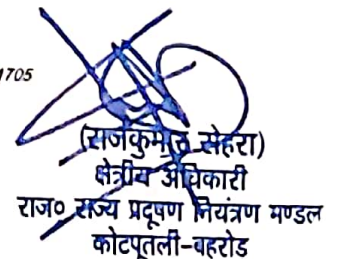 1705
(राजकुमार सेहरा)
क्षेत्रीय अधिकारी
राज० राज्य प्रदूषण नियंत्रण मण्डल
कोटपूतली-बहरोड